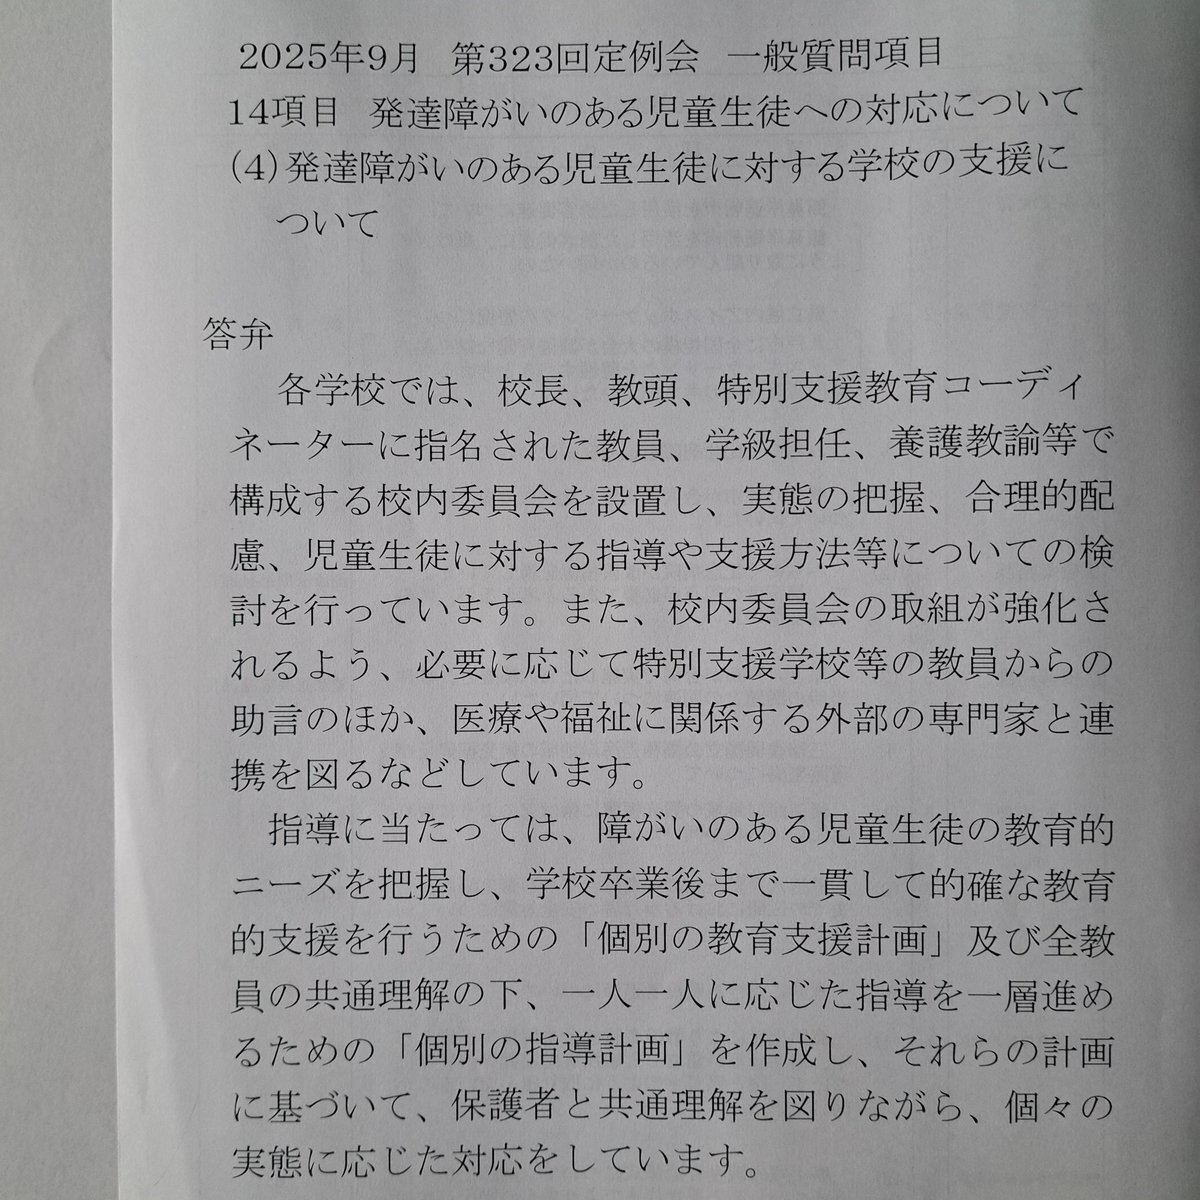 2025年9月　第323回定例会　一般質問項目
14項目　発達障がいのある児童生徒への対応について
(4)発達障がいのある児童生徒に対する学校の支援に
ついて
答弁
各学校では、校長、教頭、特別支援教育コーディ
ネーターに指名された教員、学級担任、養護教諭等で
構成する校内委員会を設置し、実態の把握、合理的配
慮、児童生徒に対する指導や支援方法等についての検
討を行っています。また、校内委員会の取組が強化さ
れるよう、必要に応じて特別支援学校等の教員からの
助言のほか、医療や福祉に関係する外部の専門家と連
携を図るなどしています。
指導に当たっては、障がいのある児童生徒の教育的
ニーズを把握し、学校卒業後まで一貫して的確な教育
的支援を行うための「個別の教育支援計画」及び全教
員の共通理解の下、一人一人に応じた指導を一層進め
るための「個別の指導計画」を作成し、それらの計画
に基づいて、保護者と共通理解を図りながら、個々の
実態に応じた対応をしています。